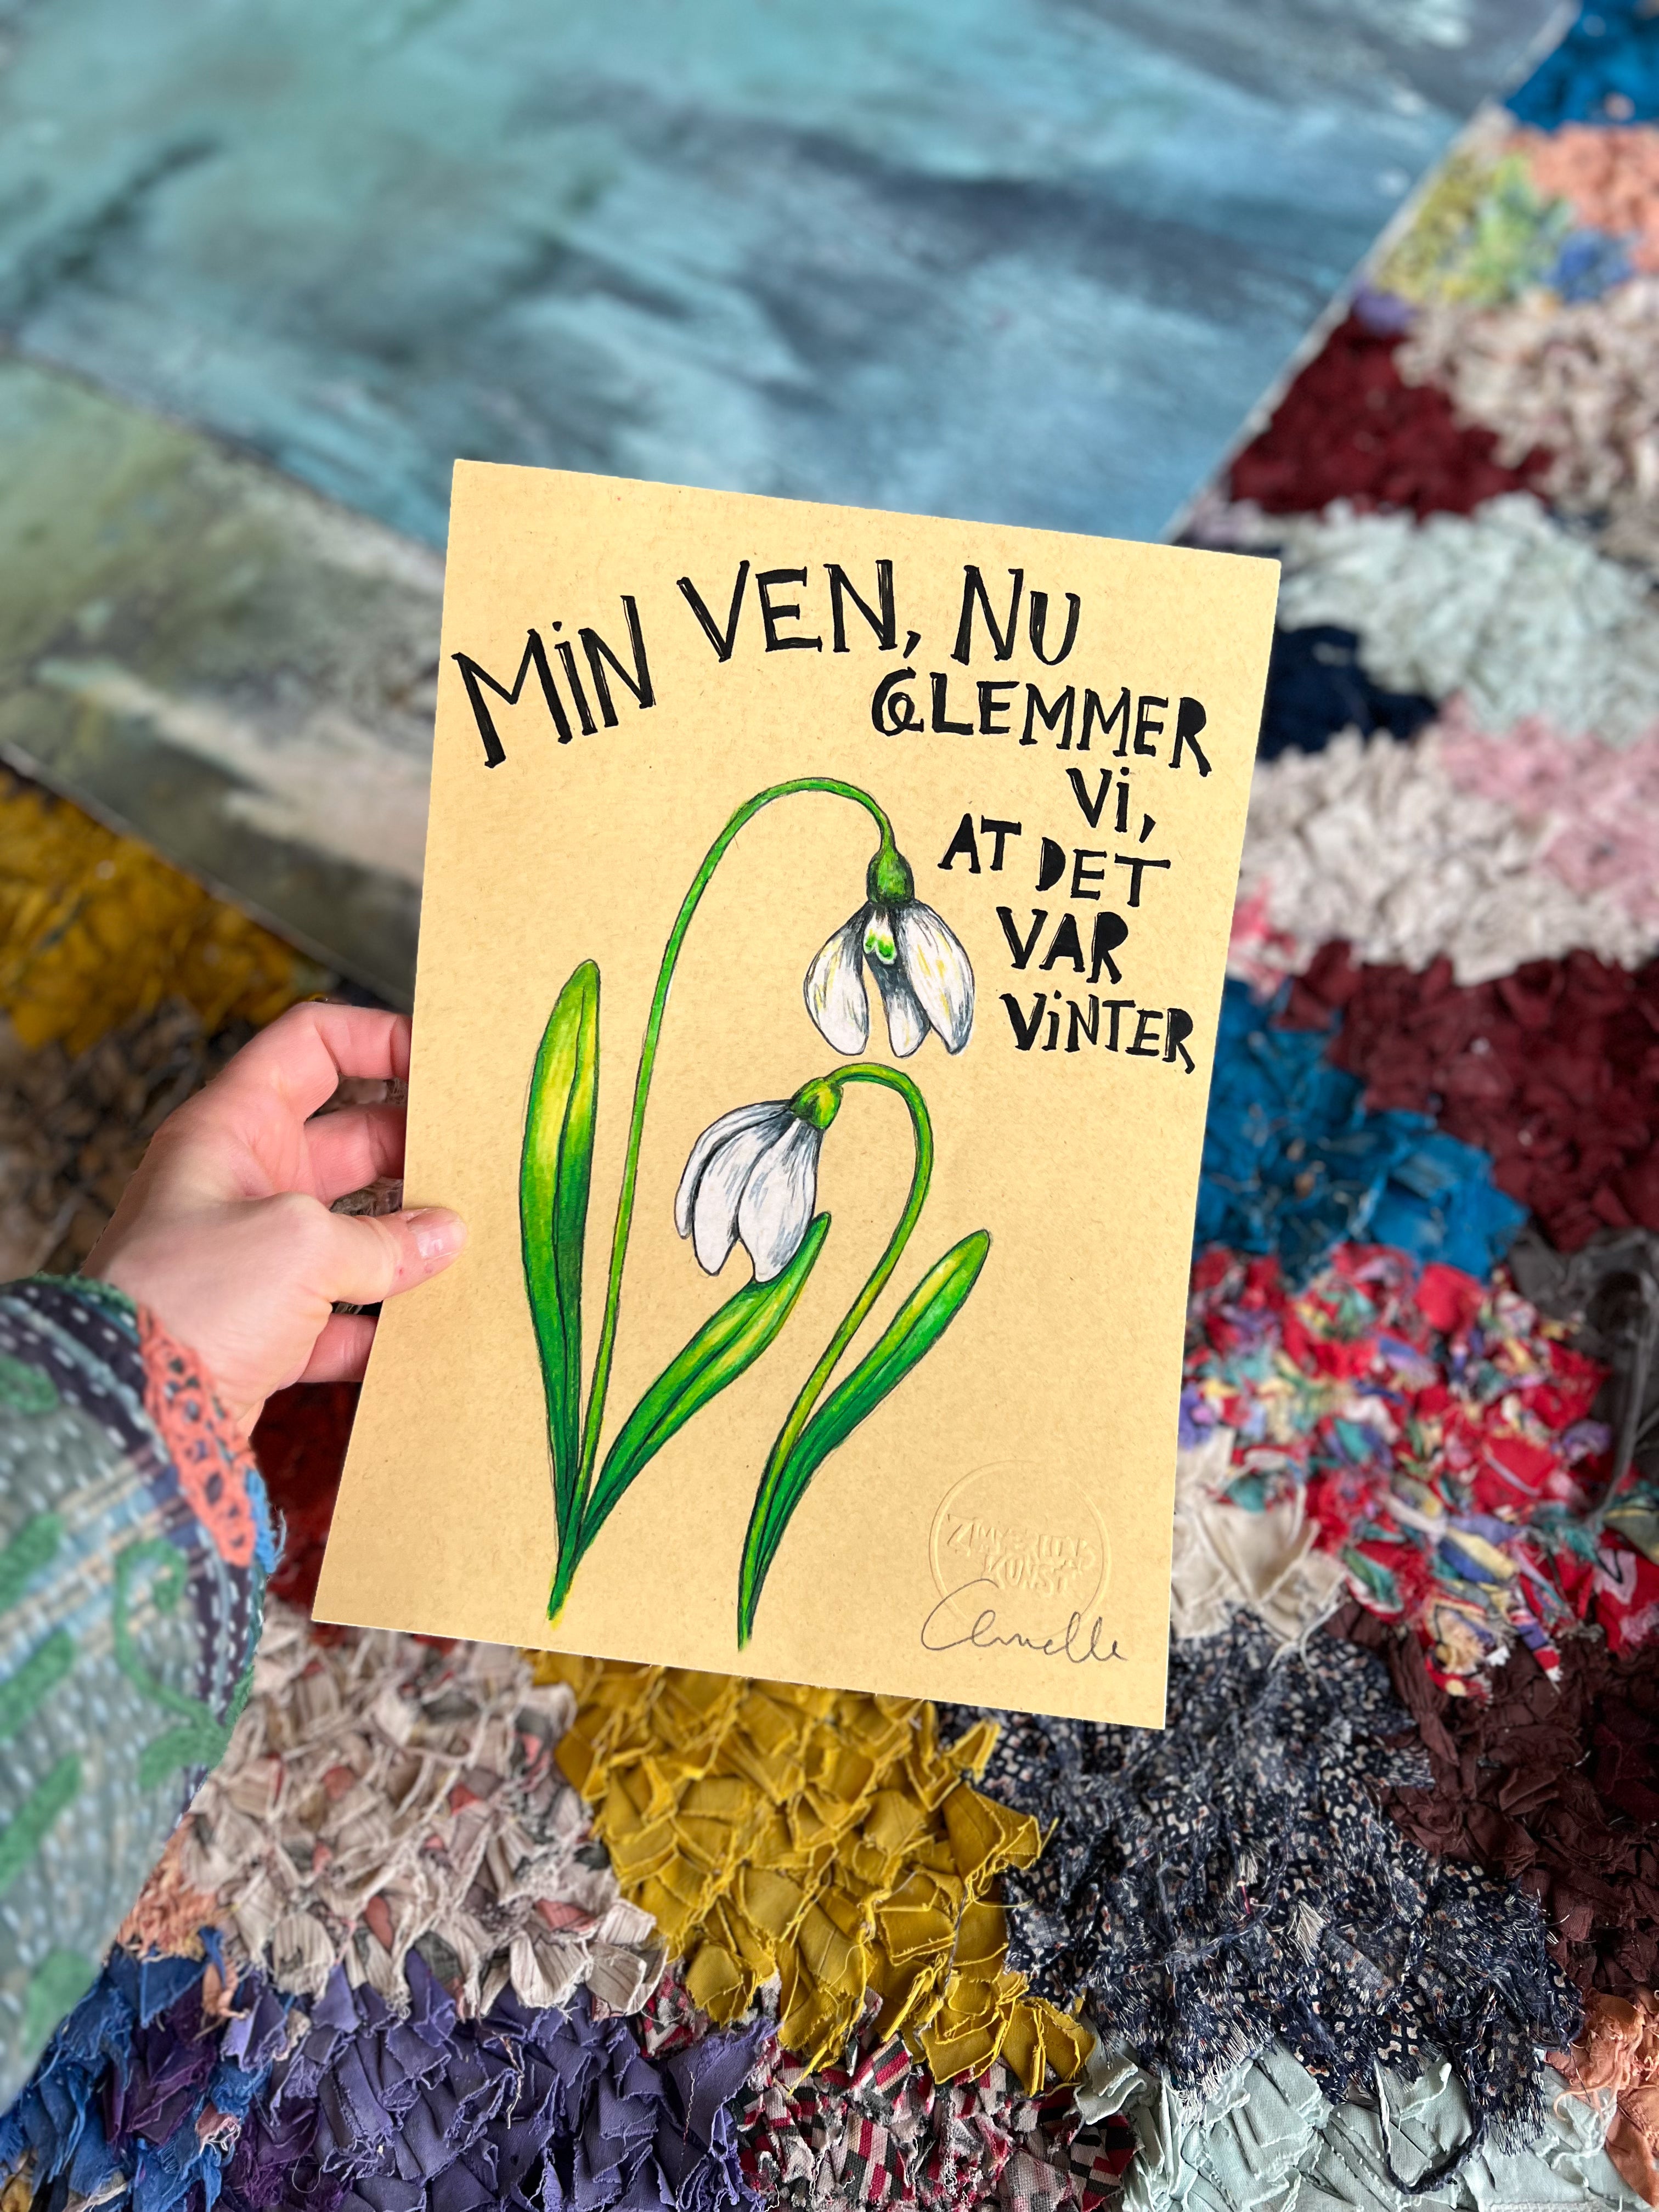 MiN VEN, NU
GLEMMER
Vi,
AT DET
VAR
ViNTER
KUNST